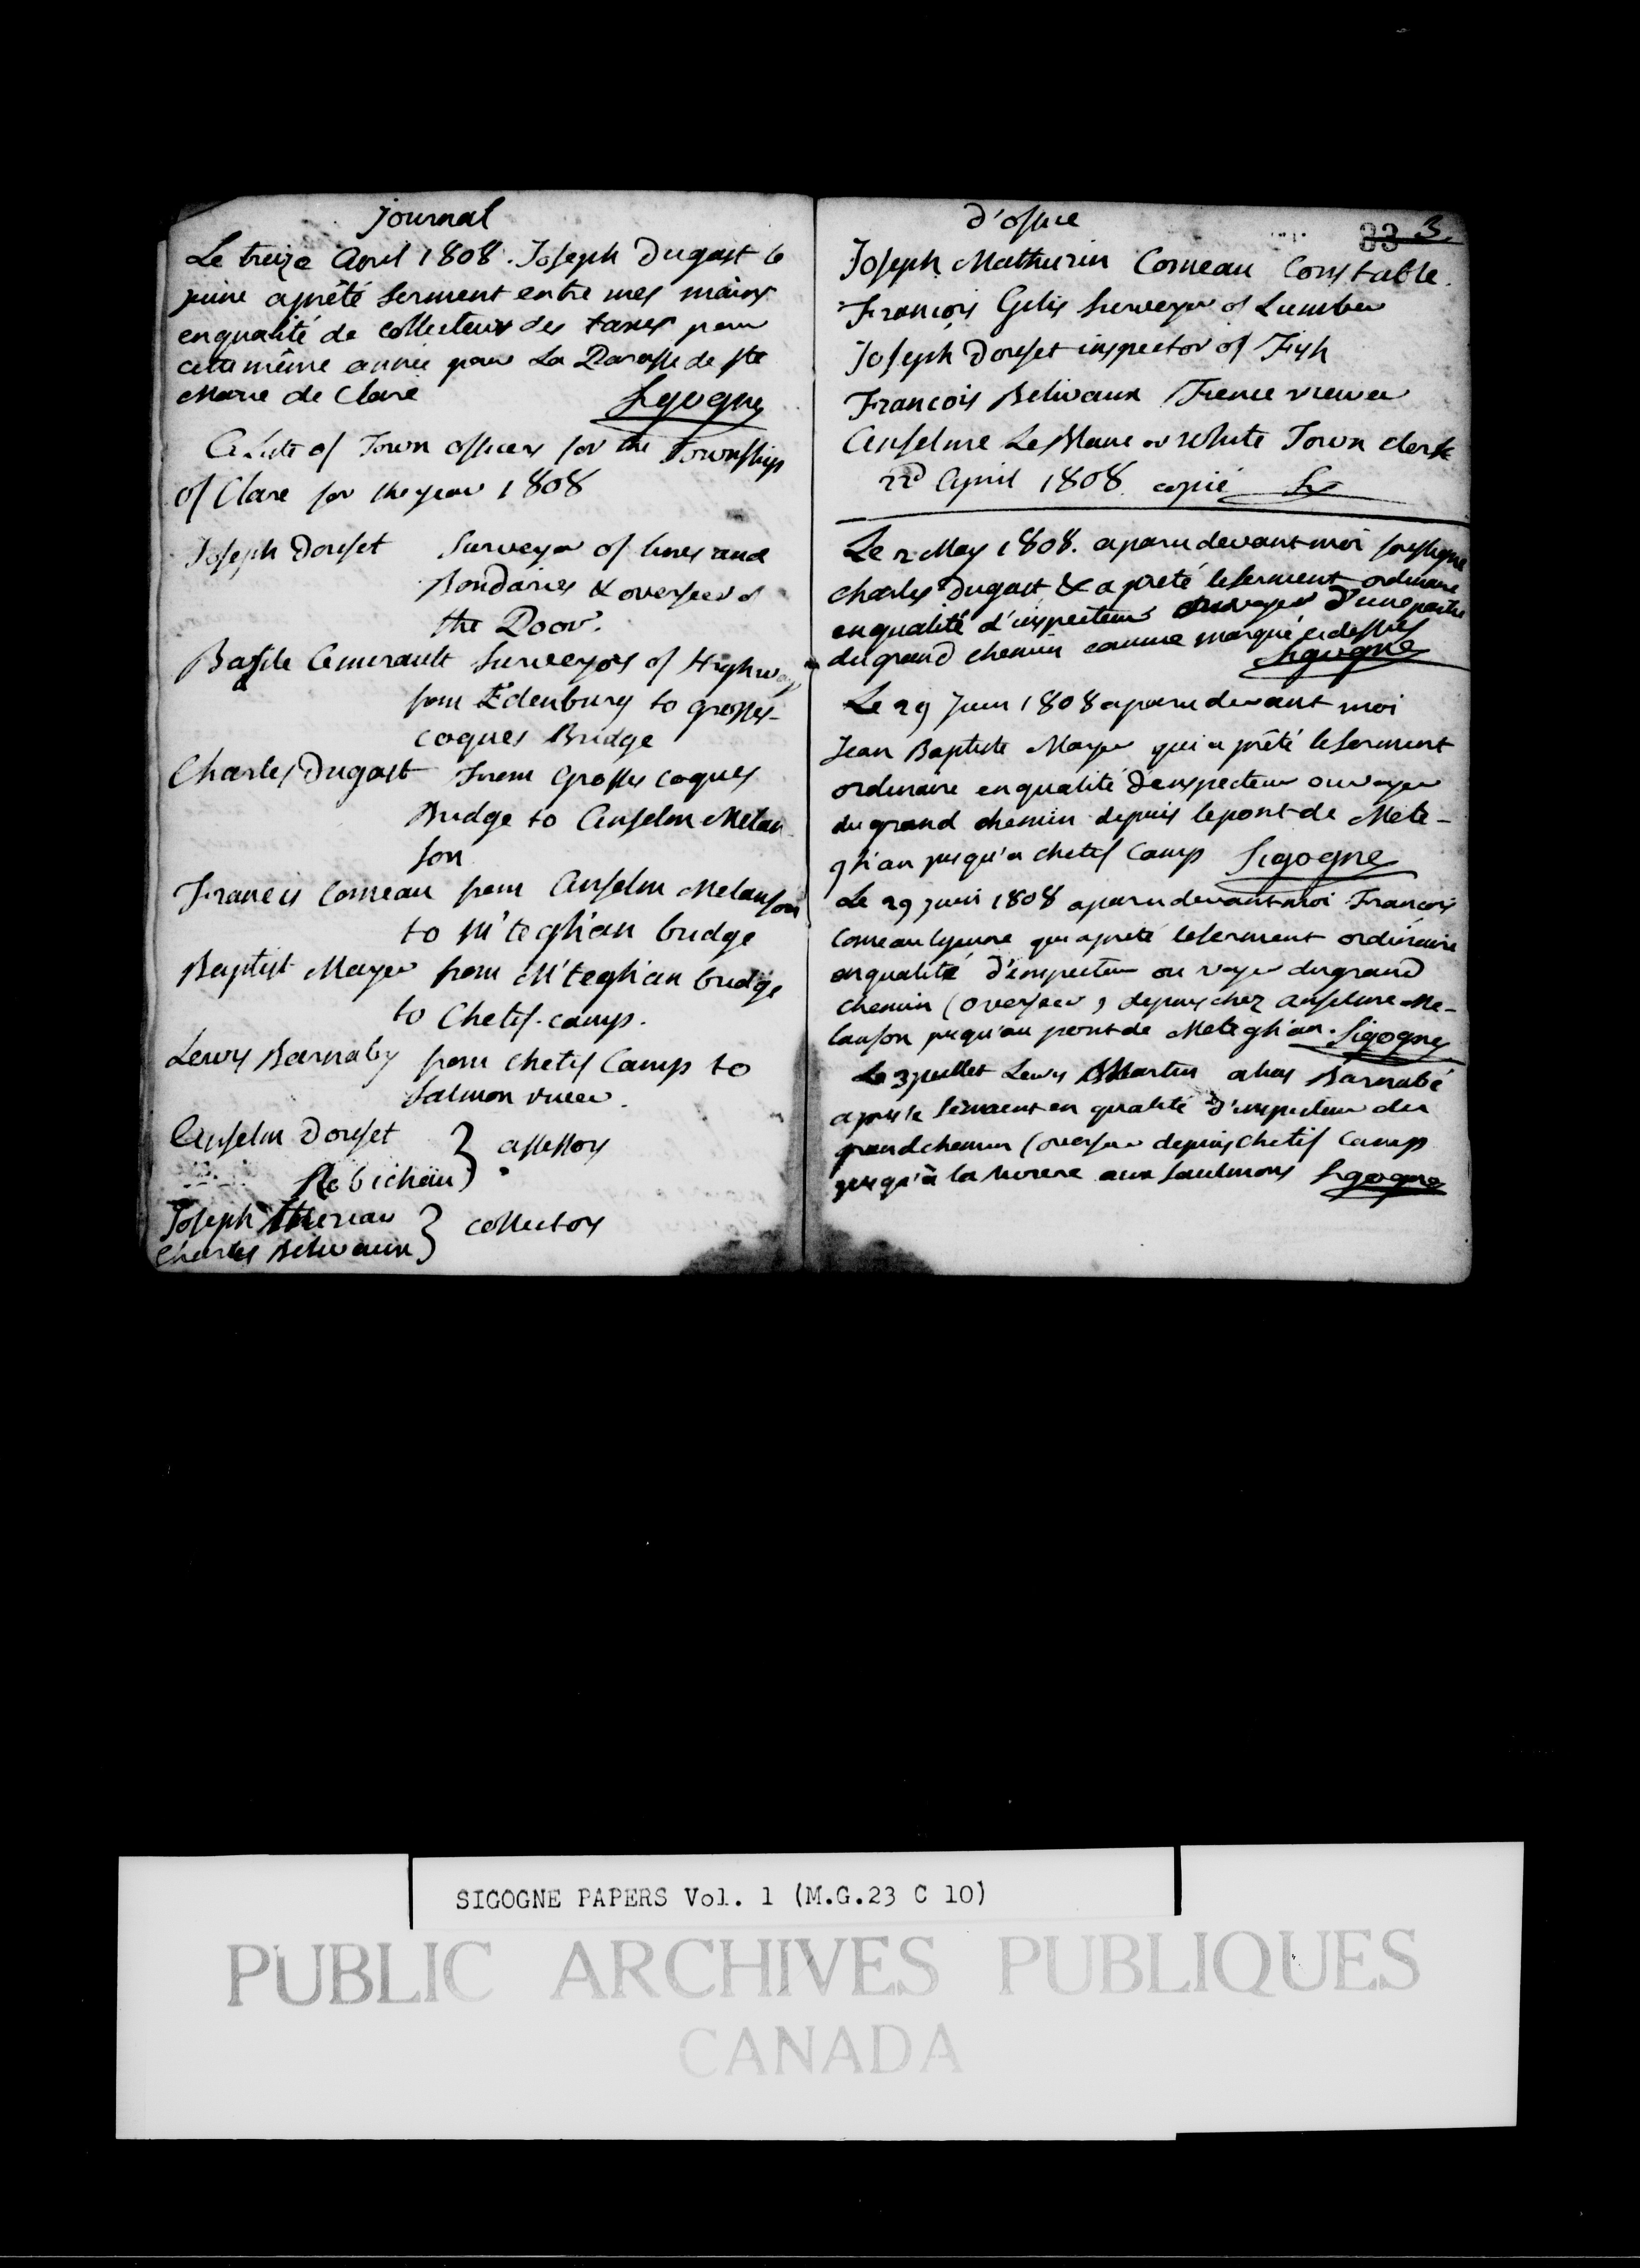 journal
Le treize Avril 1808. Joseph Dugast le
jeune a prêté serment entre mes mains
en qualité de collecteur des taxes pour
cette même année pour La Paroisse de Ste
Marie de Clare Sigogne
A Liste of Town officers for the Township
of Clare for the year 1808
Joseph Doucet Surveyor of lines and
Bondaries & overseer of
the Poor.
Basile Amirault Surveyors of Highway
from Edenbury to grosses-
coques Bridge
Charles Dugast From Grosses coques
Bridge to Anselm Melan-
son
Francis Comeau from Anselm Melanson
to M'teghan bridge
Baptist Mayer from M'teghan bridge
to Chetif-camp.
Lewis Barnaby from chetif Camp to
Salmon river.
Anselm Doucet } assessors
Robichau
Joseph Theriau } collectors
Charles Belivaux
d'office
83 3.
Joseph Mathurin Comeau Constable.
François Gilis Surveyor of Lumber
Joseph Doucet inspector of Fish
François Belivaux Fence viewer
Anselme LeBlanc or White Town clerk
22d April 1808 copié
Le 2 May 1808. a paru devant moi soussigné
charles Dugast & a prêté le serment ordinaire
en qualité d'inspecteur ou voyer d'une partie
du grand chemin comme marqué ci dessus
Sigogne
Le 29 Juin 1808 a paru devant moi
Jean Baptiste Mayer qui a prêté le serment
ordinaire en qualité d'inspecteur ou voyer
du grand chemin depuis le pont de Mete-
ghan jusqu'a chetif Camp Sigogne
Le 29 juin 1808 a paru devant moi François
Comeau le jeune qui a prêté le serment ordinaire
en qualité d'inspecteur ou voyer du grand
chemin (overseer) depuis chez Anselme Me-
lanson jusqu'au pont de Meteghan. Sigogne
Le 3 juillet Lewis Martin alias Barnabé
a prêté le serment en qualité d'inspecteur du
grand chemin (overseer depuis Chetif Camp
jusqu'à la riviere aux saulmons Sigogne
SIGOGNE PAPERS Vol. 1 (M.G.23 C 10)
PUBLIC ARCHIVES PUBLIQUES
CANADA